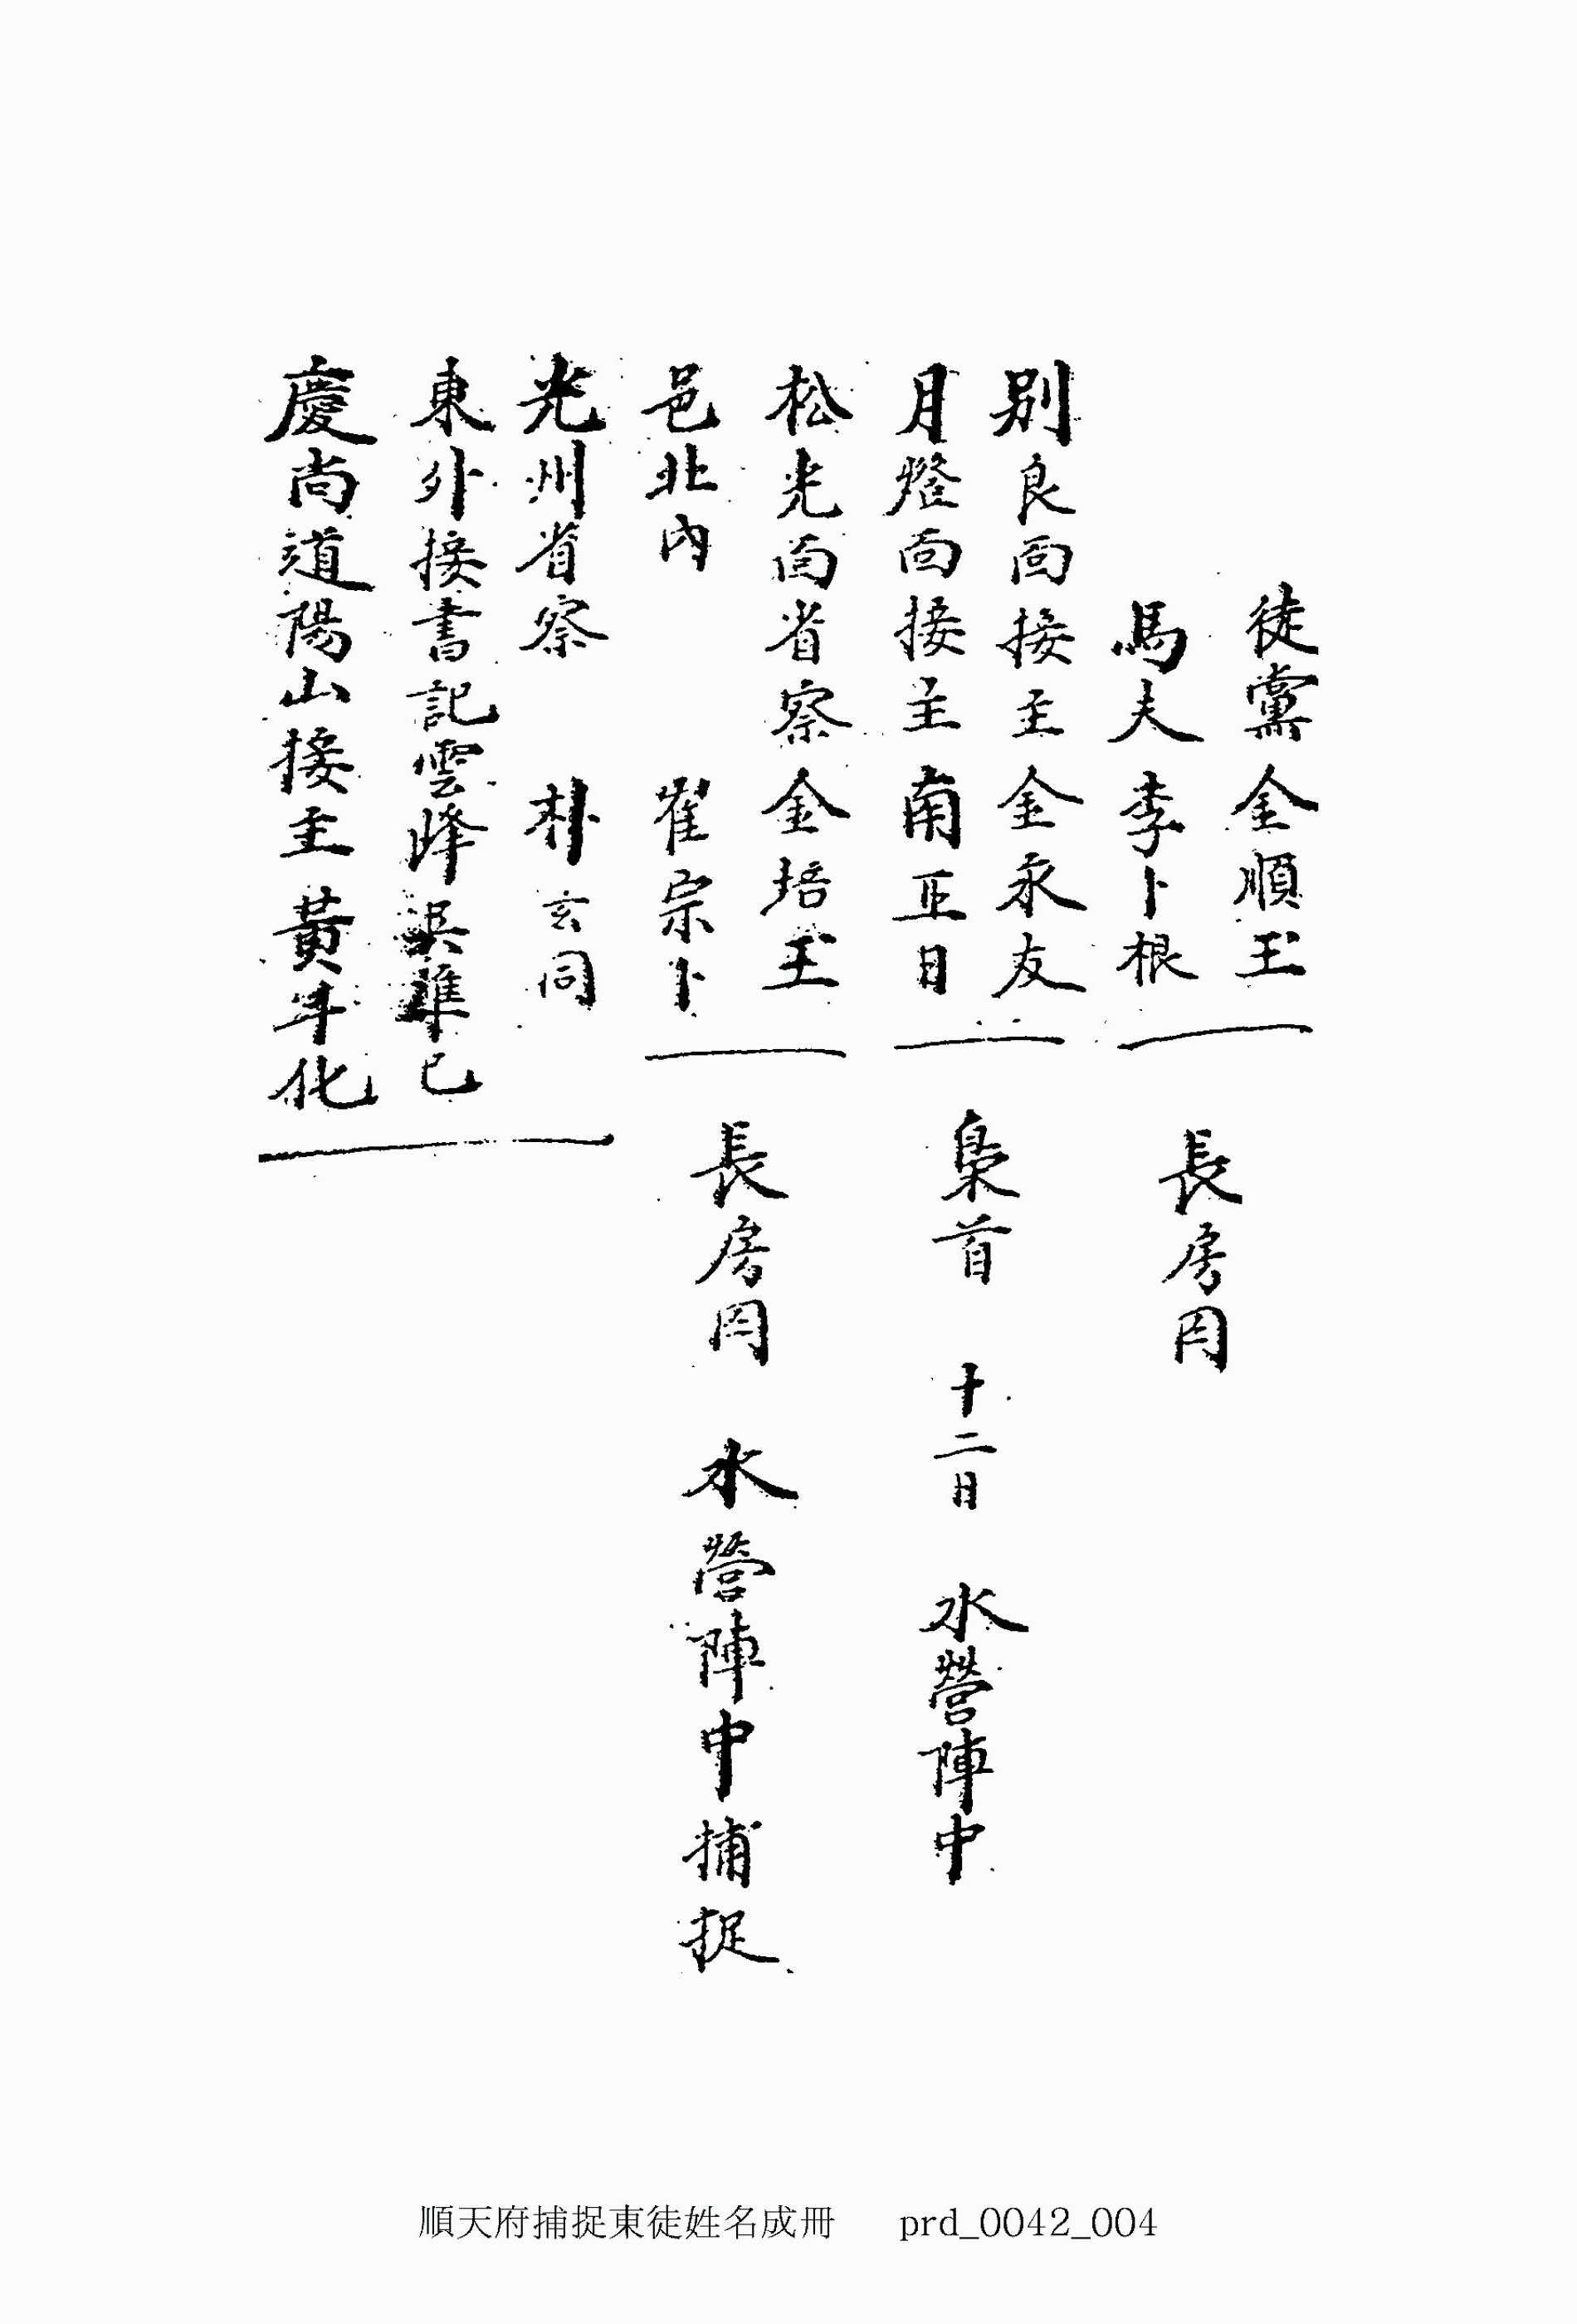 徒黨金順玉
馬夫李卜根
長房囚
別良面接主金永友
月燈面接主南正日
梟首 十二日 水營陣中
松光面省察金培玉
邑北內 崔宗卜
長房囚 水營陣中捕捉
光州省察 朴玄同
東外接書記雲峰吳準己
慶尚道陽山接主黃斗化
順天府捕捉東徒姓名成冊 prd_0042_004